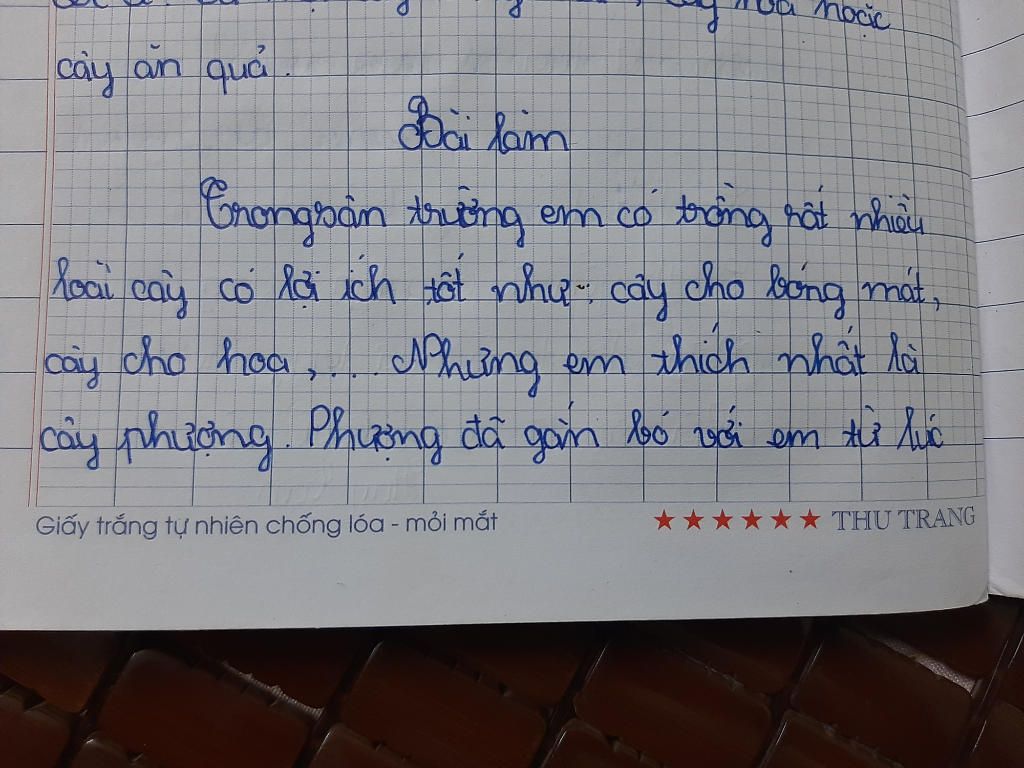 cây hoa hoặc
cây ăn quả.
Bài làm
Trong sân trường em có trồng rất nhiều
loài cây có lợi ích tốt như: cây cho bóng mát,
cây cho hoa,... Nhưng em thích nhất là
cây phượng. Phượng đã gắn bó với em từ lúc
Giấy trắng tự nhiên chống lóa - mỏi mắt
★★★★★★ THU TRANG